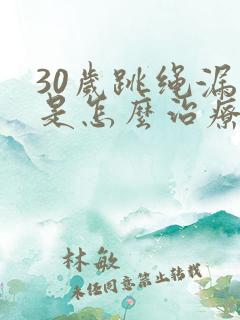 30歲跳绳漏
是怎麼治療
林敏
未经同意禁止转载